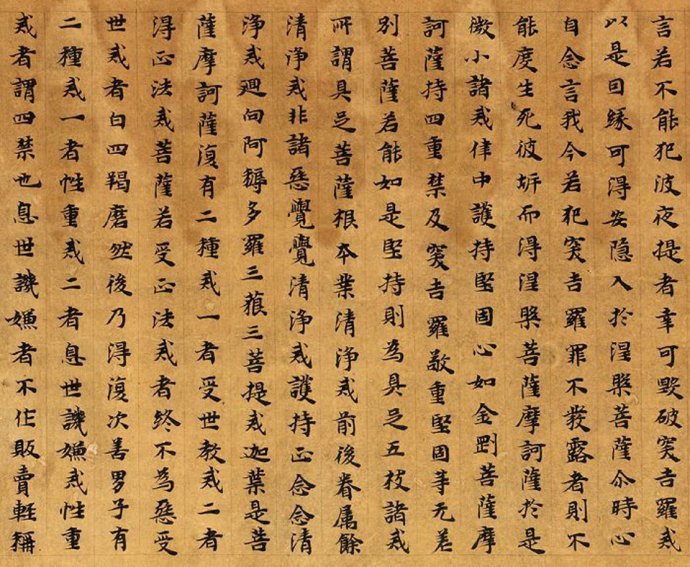 言若不能犯波夜提者幸可默破突吉羅戒
以是因緣可得安隱入於涅槃菩薩尒時心
自念言我今若犯突吉羅罪不發露者則不
能度生死彼岸而得涅槃菩薩摩訶薩於是
微小諸戒律中護持堅固心如金剛菩薩摩
訶薩持四重禁及突吉羅敬重堅固等无差
別菩薩若能如是堅持則為具足五枝諸戒
所謂具足菩薩根本業清淨戒前後眷屬餘
清淨戒非諸惡覺覺清淨戒護持正念念清
淨戒迴向阿耨多羅三藐三菩提戒迦葉是菩
薩摩訶薩復有二種戒一者受世教戒二者
得正法戒菩薩若受正法戒者終不為惡受
世戒者白四羯磨然後乃得復次善男子有
二種戒一者性重戒二者息世譏嫌戒性重
戒者謂四禁也息世譏嫌者不作販賣輕稱